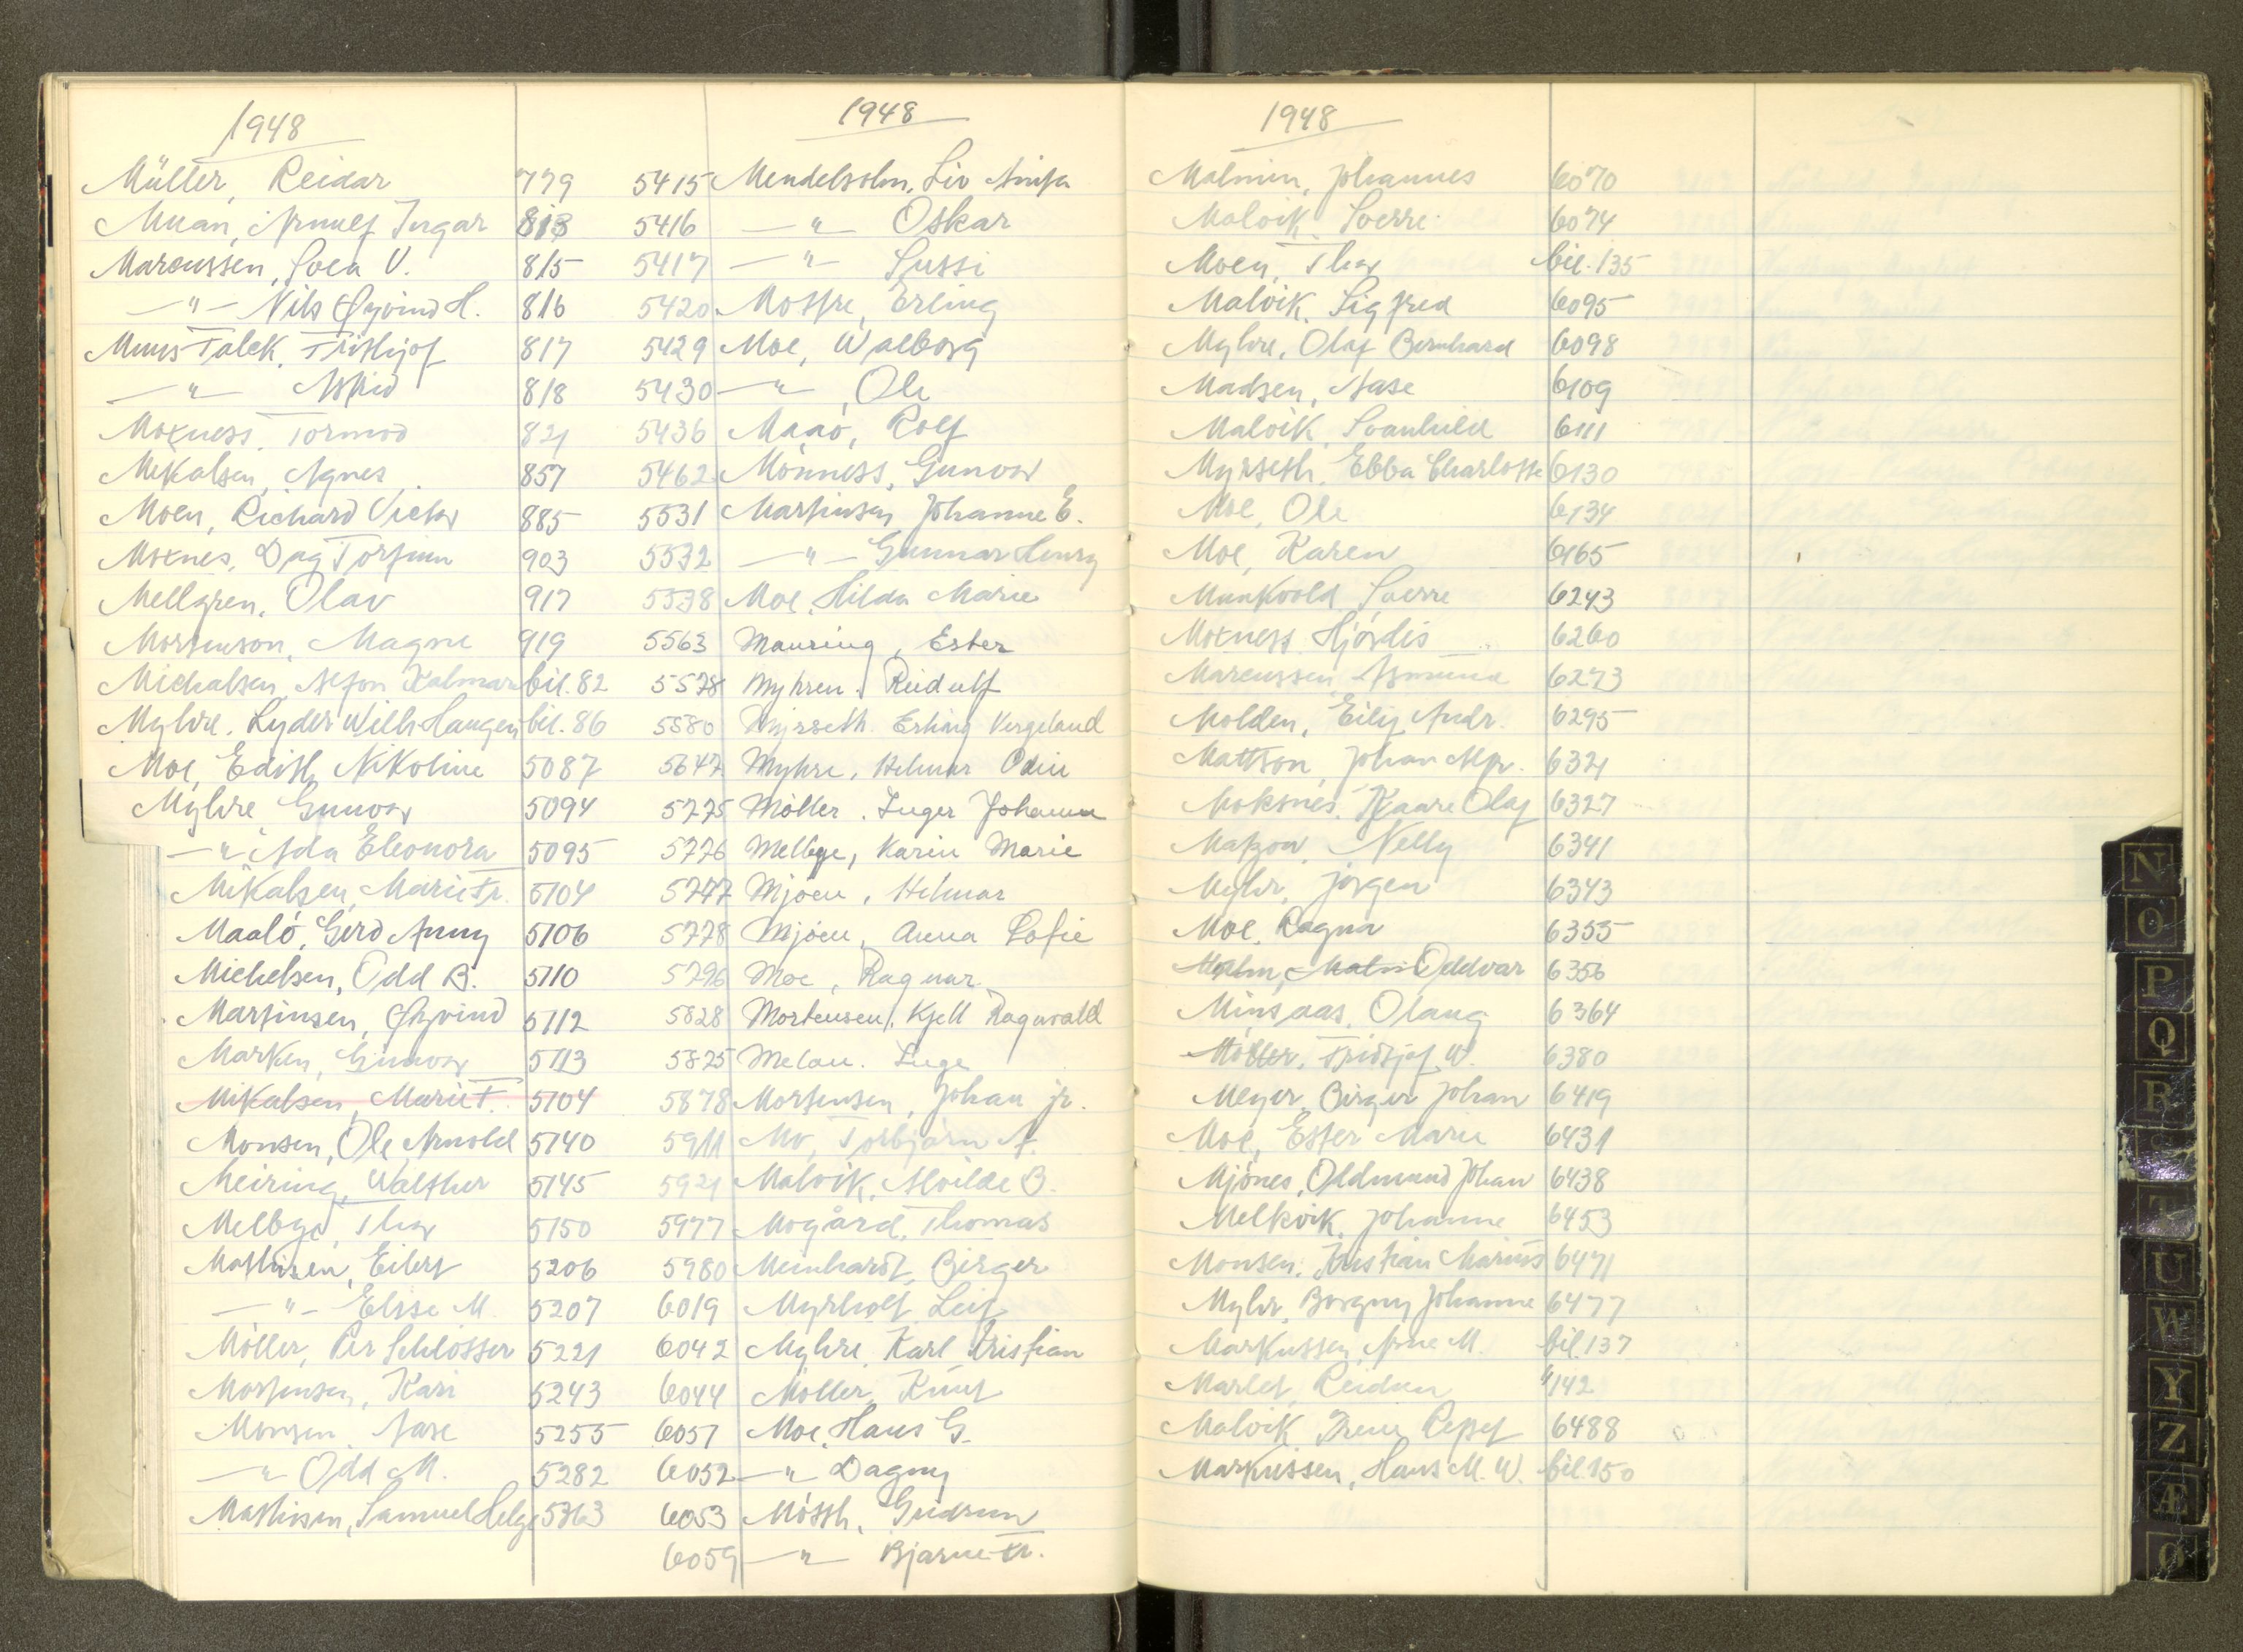 1948
Müller, Reidar 779
Muan, Arnulf Ingar 813
Marcussen, Svea V. 815
—"— Nils Øyvind H. 816
Muus Falck, Frithjof 817
—"— Astrid 818
Moxness, Tormod 821
Mikalsen, Agnes 857
Moen, Richard Victor 885
Moxnes, Dag Torfinn 903
Mellgren, Olav 917
Mortenson, Magne 919
Michalsen, Alfon Halmar bil. 82
Myhre, Lyder Wilh. Haugen bil. 86
Moe, Edith Nikoline 5087
Myhre Gunvor 5094
—"— Ada Eleonora 5095
Mikalsen, Marie Fr. 5104
Maalö, Gerd Anny 5106
Michelsen, Odd B. 5110
Martinsen, Øyvind 5112
Marken, Gunvor 5113
Mikalsen, Marie F. 5104
Monsen, Ole Arnold 5140
Meiring, Walther 5145
Melbye, Thor 5150
Mathisen, Eilert 5206
—"— Elise M. 5207
Möller, Per Schlösser 5221
Mortensen, Kari 5243
Monsen, Aase 5255
—"— Odd M. 5282
Mathisen, Samuel Helge 5363
1948
5415 Mendelsohn, Liv Anita
5416 —"— Oskar
5417 —"— Sussi
5420 Mostre, Erling
5429 Moe, Walborg
5430 —"—, Ole
5436 Maaö, Rolf
5462 Mönness, Gunvor
5531 Martinsen, Johanne E.
5532 —"— Gunnar Henry
5538 Moe, Hilda Marie
5563 Mauring, Ester
5578 Myhren, Rudulf
5580 Myrseth, Erling Vergeland
5647 Myhre, Helmer Odin
5775 Möller, Inger Johanne
5776 Melbye, Karin Marie
5777 Mjöen, Helmar
5778 Mjöen, Anna Sofie
5796 Moe, Ragnar
5828 Mortensen, Kjell Ragnvald
5825 Melau, Inge
5878 Mortensen, Johan jr.
5911 Mo, Torbjörn A.
5921 Malvik, Alvilde B.
5977 Mogård, Thomas
5980 Meinhardt, Birger
6019 Myrholt, Leif
6042 Myhre, Karl Kristian
6044 Möller, Knut
6051 Moe, Hans G.
6052 —"— Dagny
6053 Mössh, Gudrun
6059 —"— Bjarne Tr.
1948
Malmin, Johannes 6070
Malvik, Sverre 6074
Moen, Thor bil. 135
Malvik, Sigfred 6095
Myhre, Olaf Bernhard 6098
Madsen, Aase 6109
Malvik, Svanhild 6111
Myrseth, Ebba Charlotte 6130
Moe, Ole 6134
Moe, Karen 6165
Munkvold, Sverre 6243
Moxness, Hjördis 6260
Marcussen, Asmund 6273
Molden, Eilif Andr. 6295
Mattson, Johan Alfr. 6321
Moksnes, Kaare Olaf 6327
Nelly 6341
Myhr, Jörgen 6343
Moe, Ragna 6355
Malm, Oddvar 6356
Minsaas, Olaug 6364
Möller, Fridtjof W. 6380
Meyer, Birger Johan 6419
Moe, Ester Marie 6431
Mjönes, Oldmund Johan 6438
Melkvik, Johanne 6453
Monsen, Kristian Marius 6471
Myhr, Borgny Johanne 6477
Markussen, Arne M. bil. 137
Reidun " 142
Malvik, Irene 6488
Markussen, Hans M. W. bil. 150
N
O
P
Q
R
S
T
U
W
Y
Z
Æ
Ø